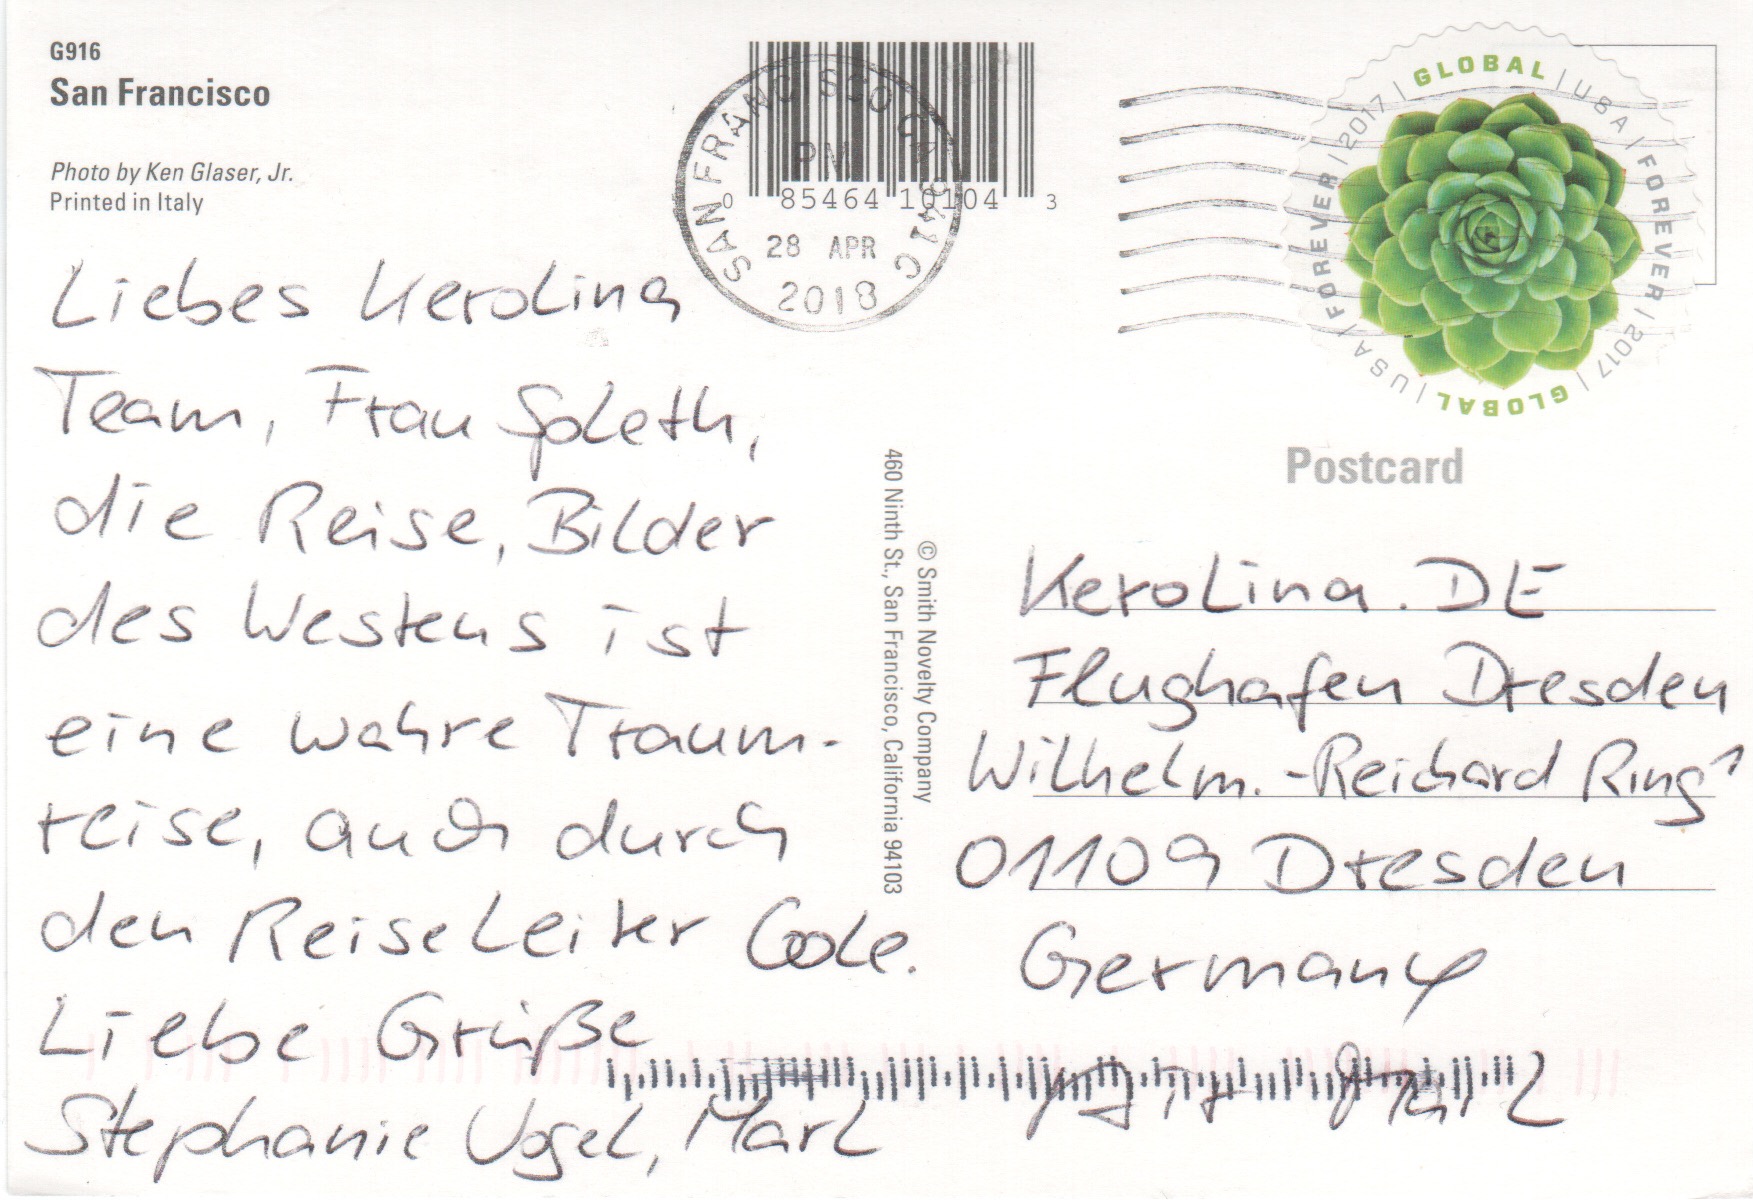 G916
San Francisco
Photo by Ken Glaser, Jr.
Printed in Italy
0 85464 10104 3
SAN FRANCISCO CA
PM
28 APR
2018
GLOBAL | USA | FOREVER | 2017 | GLOBAL | USA | FOREVER | 2017 |
Postcard
Liebes Kerolina
Team, Frau Goleth,
die Reise, Bilder
des Westens ist
eine wahre Traum-
reise, auch durch
den Reiseleiter Cole.
Liebe Grüße
Stephanie Vogel, Marl
© Smith Novelty Company
460 Ninth St., San Francisco, California 94103
Kerolina.DE
Flughafen Dresden
Wilhelm.-Reichard Ring 1
01109 Dresden
Germany